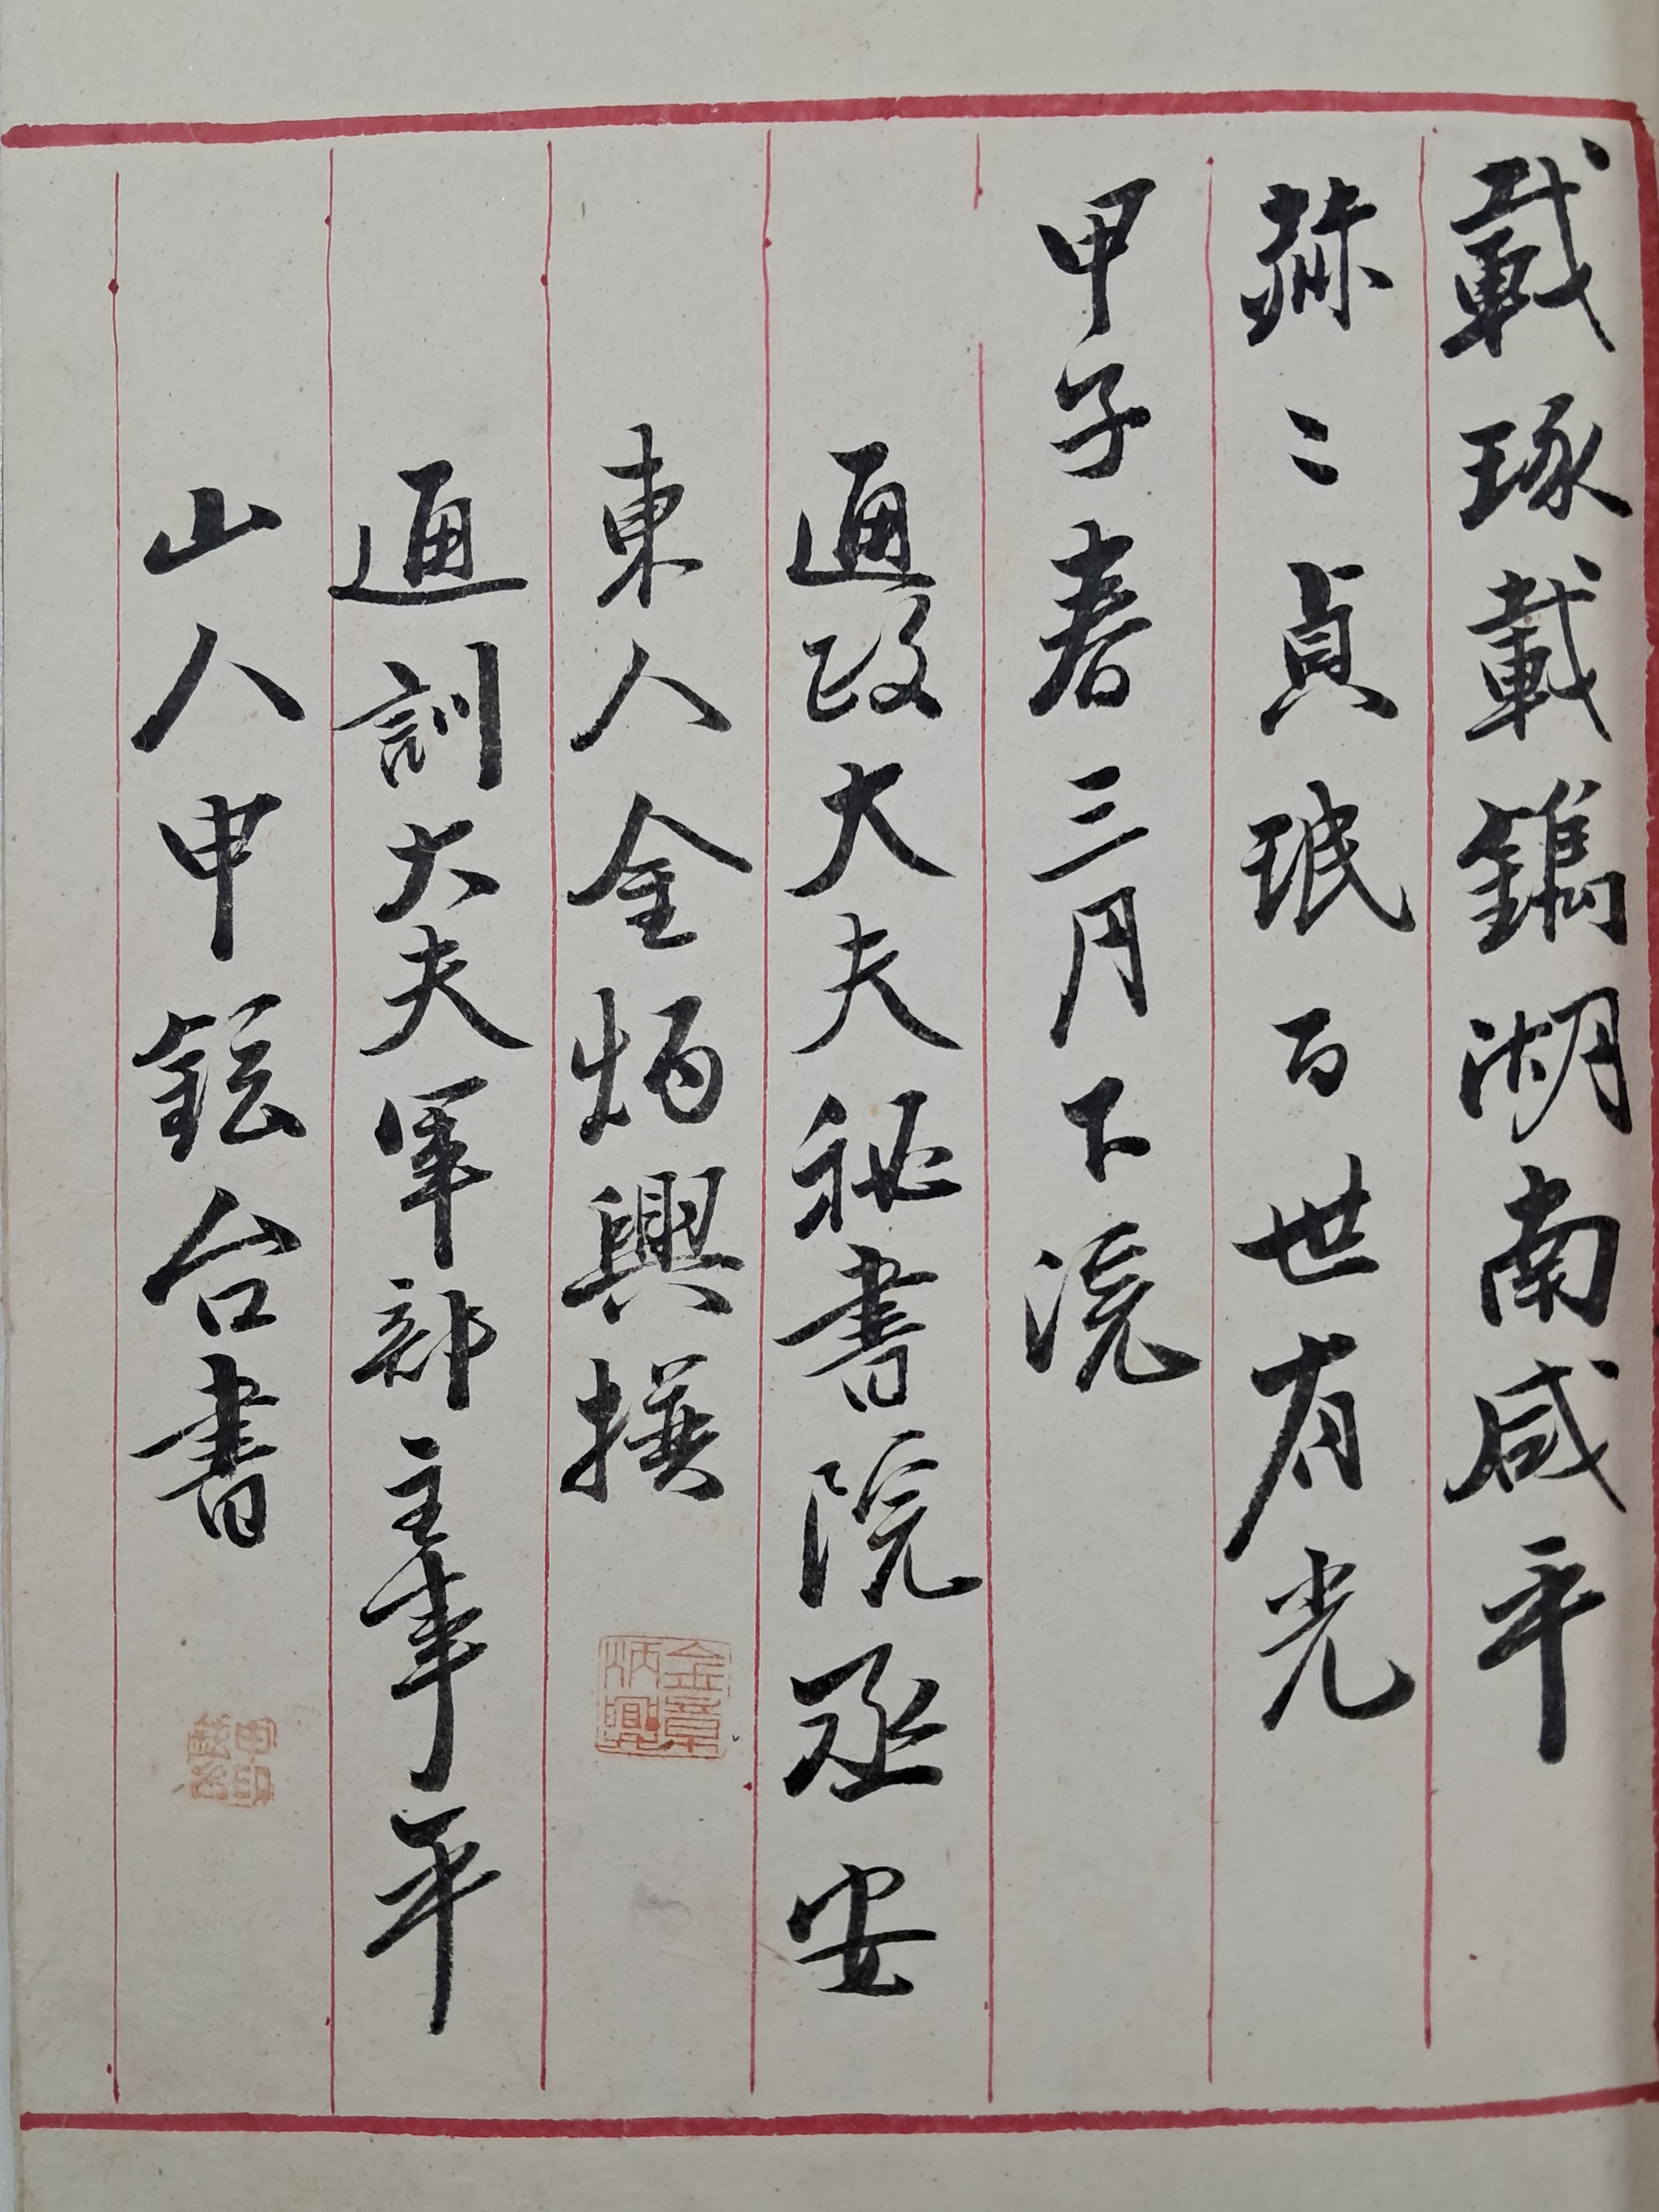 載琢載鐫湖南咸平
赫〻貞珉百世有光
甲子春三月下浣
通政大夫秘書院丞安
東人金炳興撰
金章炳興
通訓大夫軍部主事平
山人申鉉台書
申印鉉台